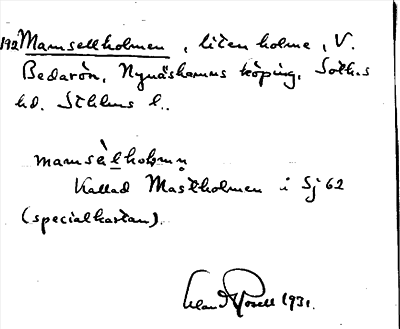 192 Mamsellholmen, liten holme, V.
Bedarön, Nynäshamns köping, Soth.s
hd. Sthlms l.
mamsèlhòḷmn
Kallad Mastholmen i Sj 62
(specialkartan).
1931.